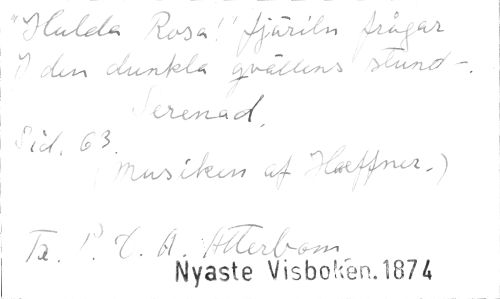 "Hulda Rosa!" fjäriln frågar
I den dunkla qvällens stund -.
Serenad.
Sid. 63.
(Musiken af Hæffner.)
Tx. P. D. A. Atterbom
Nyaste Visboken. 1874